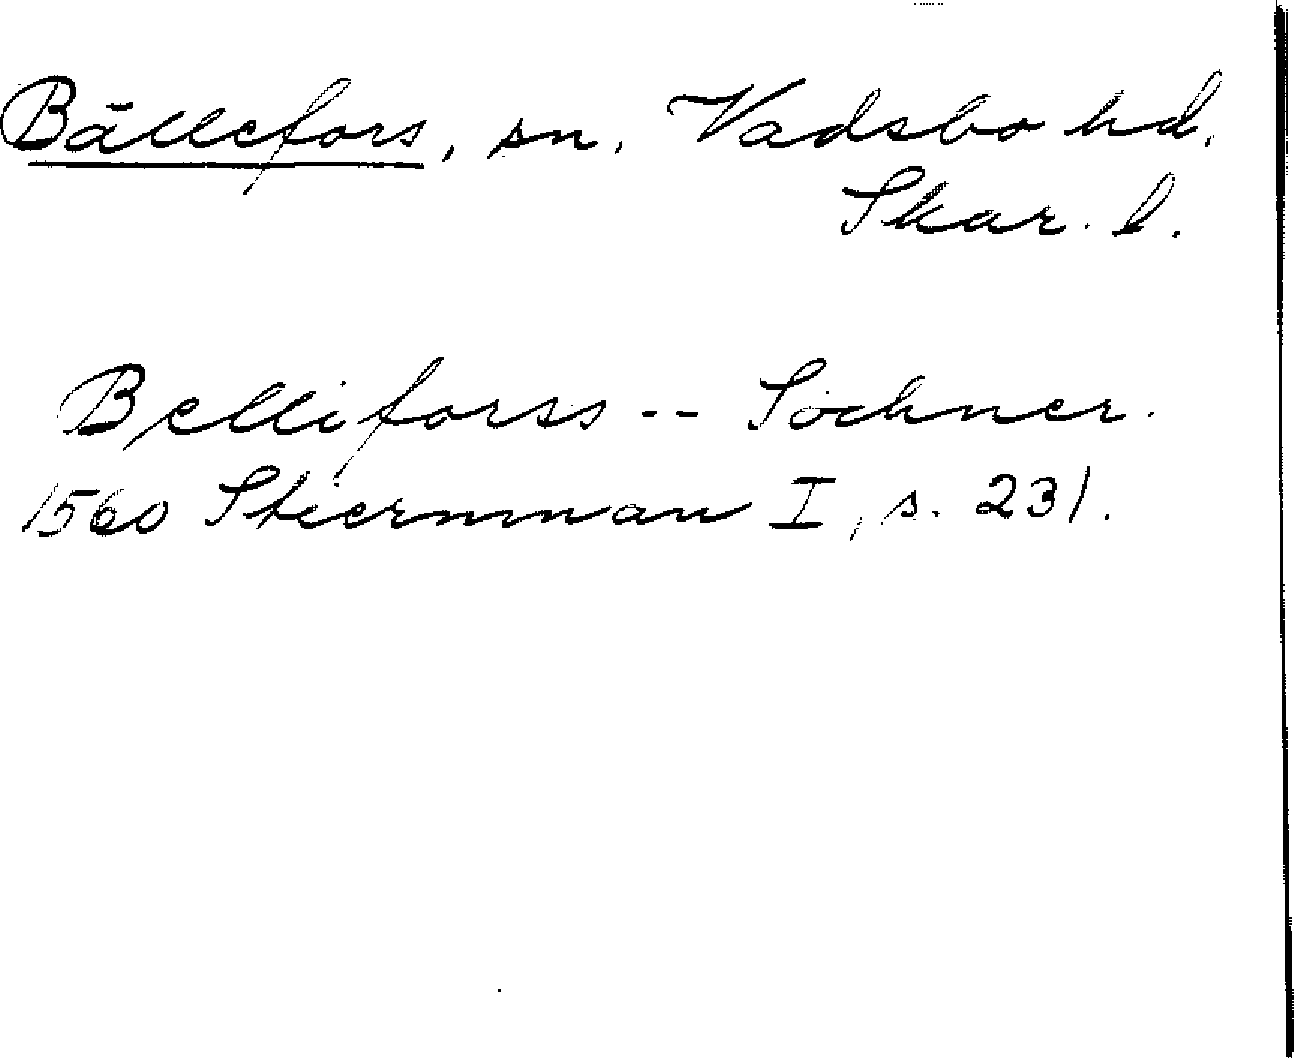 Bällefors, sn. Vadsbo hd.
Skar. l.
Belliforss -- Sochner.
1560 Stiernman I, s. 231.